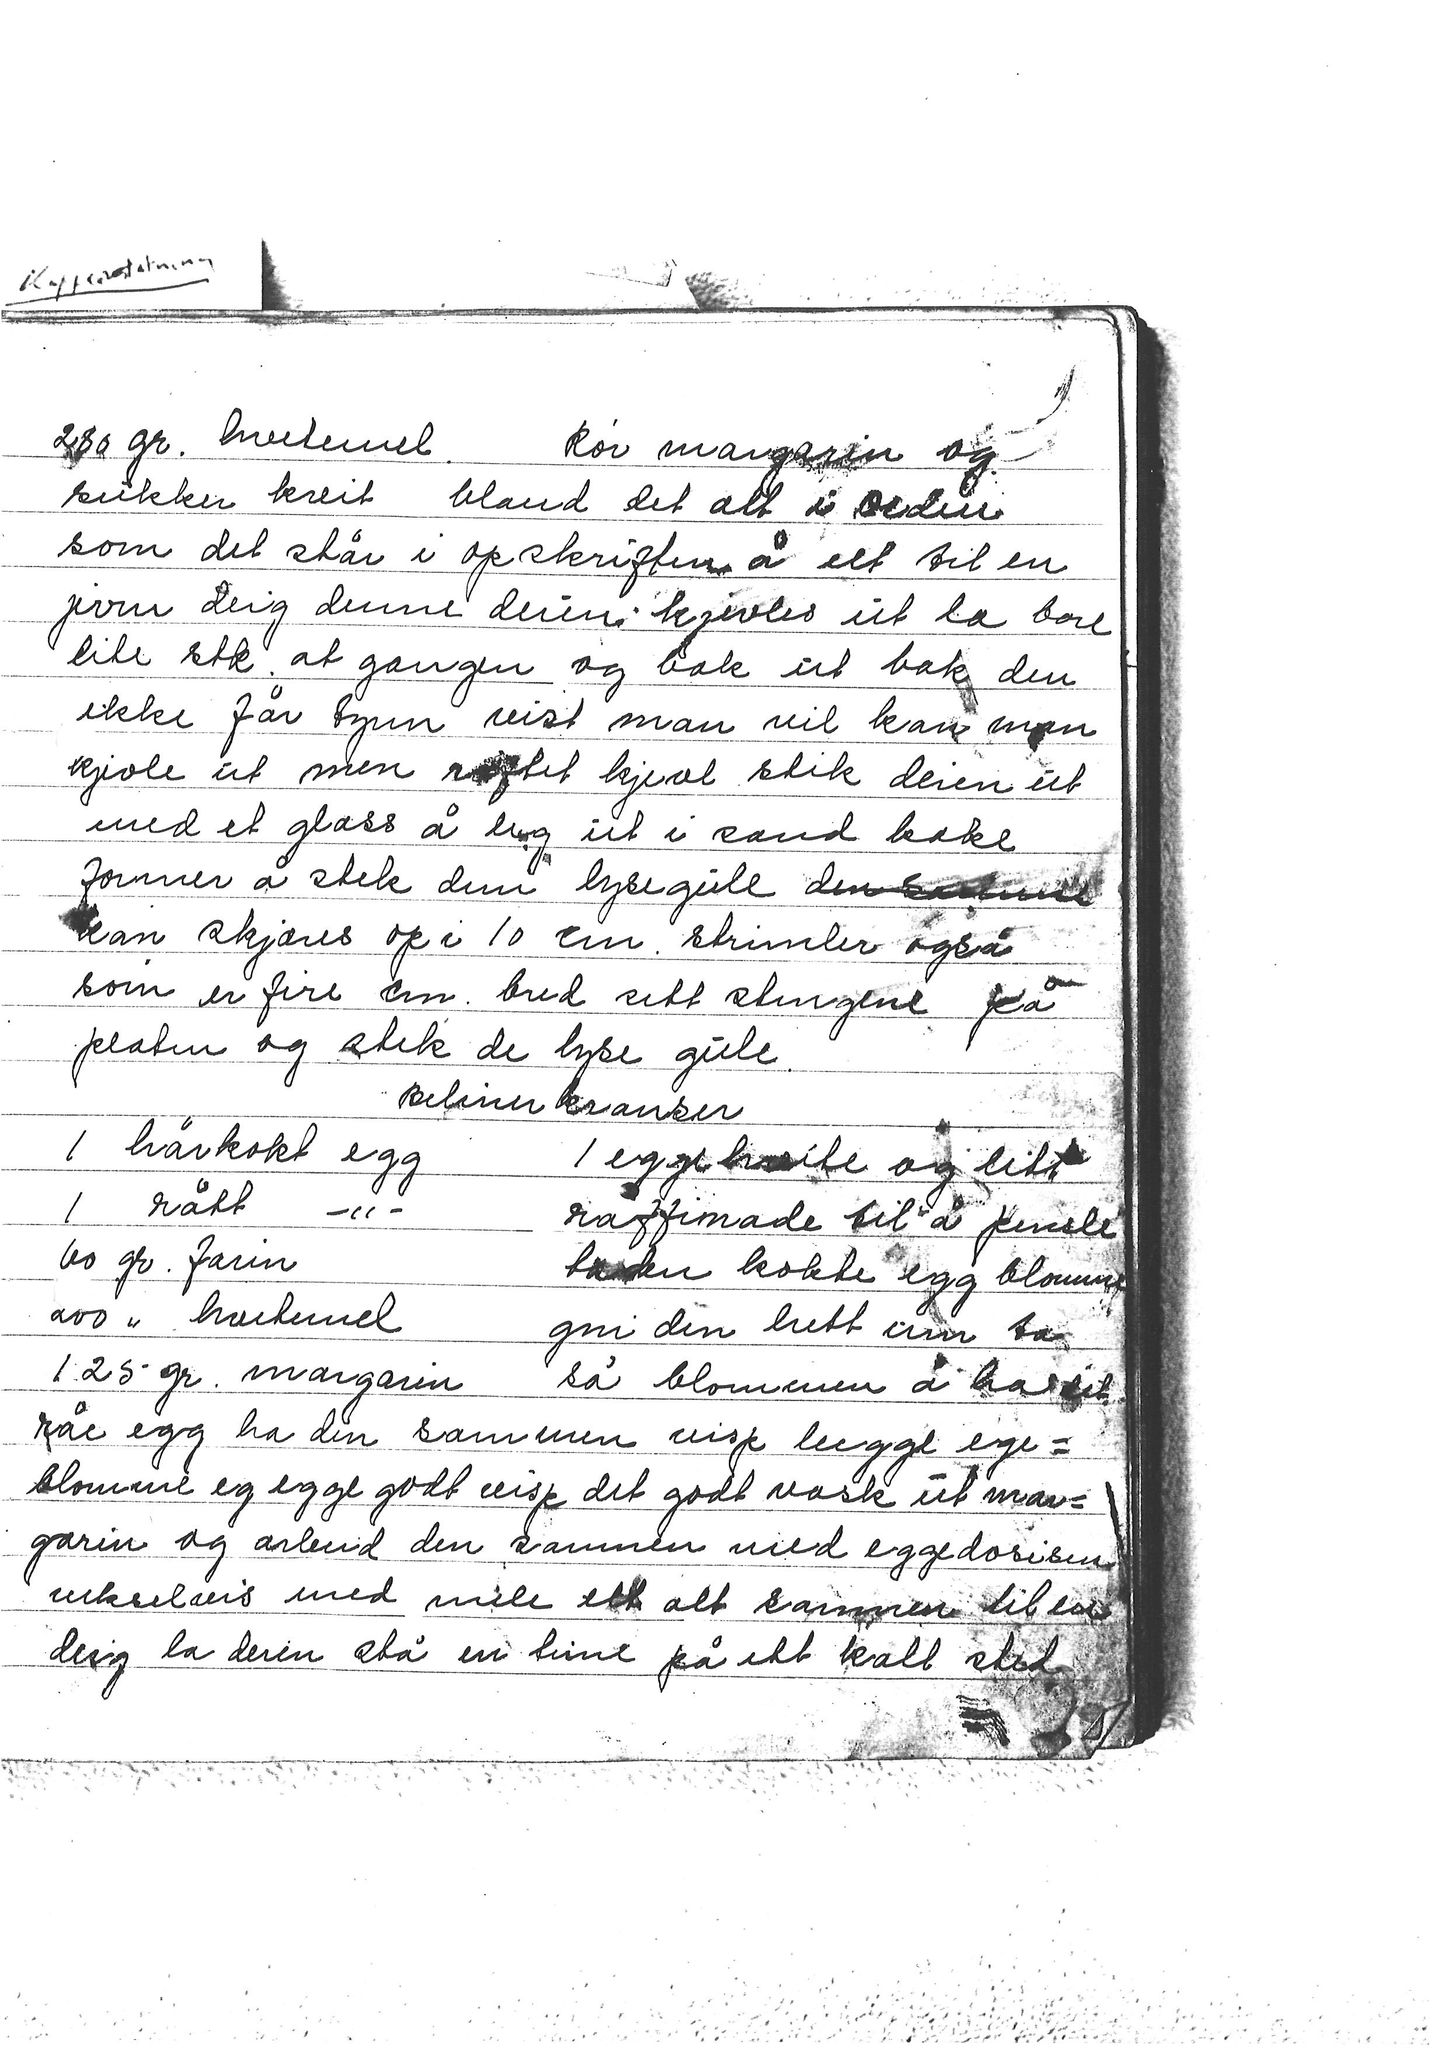 Kaffeerstatning
280 gr. hvetemel. Rör margarin og
sukker kveit bland det alt i orden
som det står i opskriften å elt til en
jevn deig denne deien kjevles ut ta bare
lite stk. at gangen og bak ut bak den
ikke får tynn vist man vil kan man
kjvle ut men riflet kjevl stik deien ut
med et glass å leg ut i sand kake
former å stek dem lysegule
kan skjæres op i 10 cm. strimler også
som er fire cm. bred sett stengene på
platen og stek de lyse gule.
Beliner kranser
1 hårkokt egg 1 eggehvite og litt
1 rått -"- raffinade til å pensle
60 gr. farin ta den kokte egg blomme
200 " hvetemel gni den hett um ta
125 gr. margarin så blommen å ha i et
råe egg ha den sammen visp begge ege=
blomme og egge godt visp det godt vask ut mar=
garin og arbeid den sammen med eggedosisen
vekselvis med mele elt alt sammen til en
deig la deien stå en time på ett kalt sted